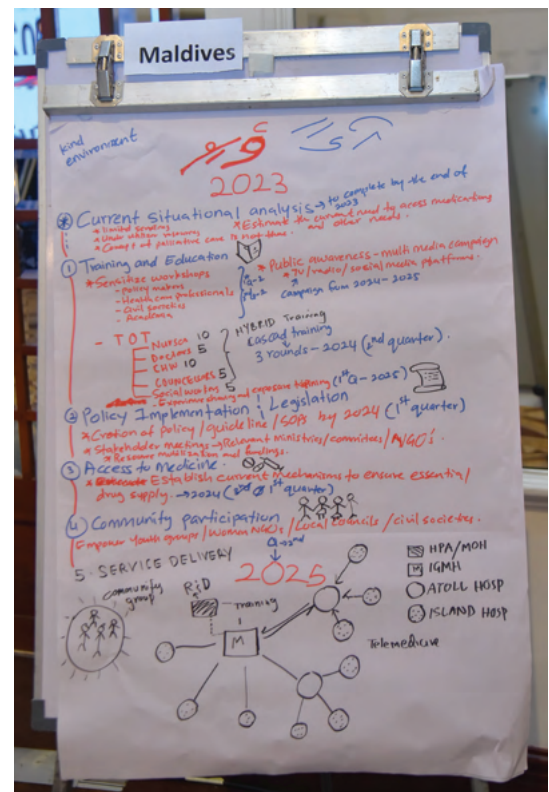 Maldives
kind
environment
2023
Current situational analysis → to complete by the end of
2003
* limited services
* Estimate the current need to acess medications
and other needs.
* Concept of palliative care is not there.
① Training and Education
* Sensitize workshops
- Policy makers
- Health care professionals
- Civil societies
- Academia
* Public awareness - multi media campaign
* TV/radio/social media platforms.
campaign from 2024-2025
- TOT
Nurses 10
Doctors 5
CHW 10
Councellors 5
Social workers 5
HYBRID Training
Cascad training
3 rounds - 2024 (2nd quarter).
- Experience sharing and exposure training (1st Q - 2025)
② Policy Implementation & Legislation
* Cration of policy/guideline/SOPs by 2024 (1st quarter)
* Stakeholder meetings → Relevant ministries/committees/NGO's
* Resource mobilization and fundings.
③ Access to Medicine.
* Establish current mechanisms to ensure essential
drug supply. → 2024 (1st quarter)
④ Community participation
Empower Youth groups/Women NGOs/Local Councils/civil societies.
Q → 2nd
5. SERVICE DELIVERY
2025
community
group
R&D
Training
M
HPA/MOH
M IGMH
ATOLL HOSP
ISLAND HOSP
Telemedicine